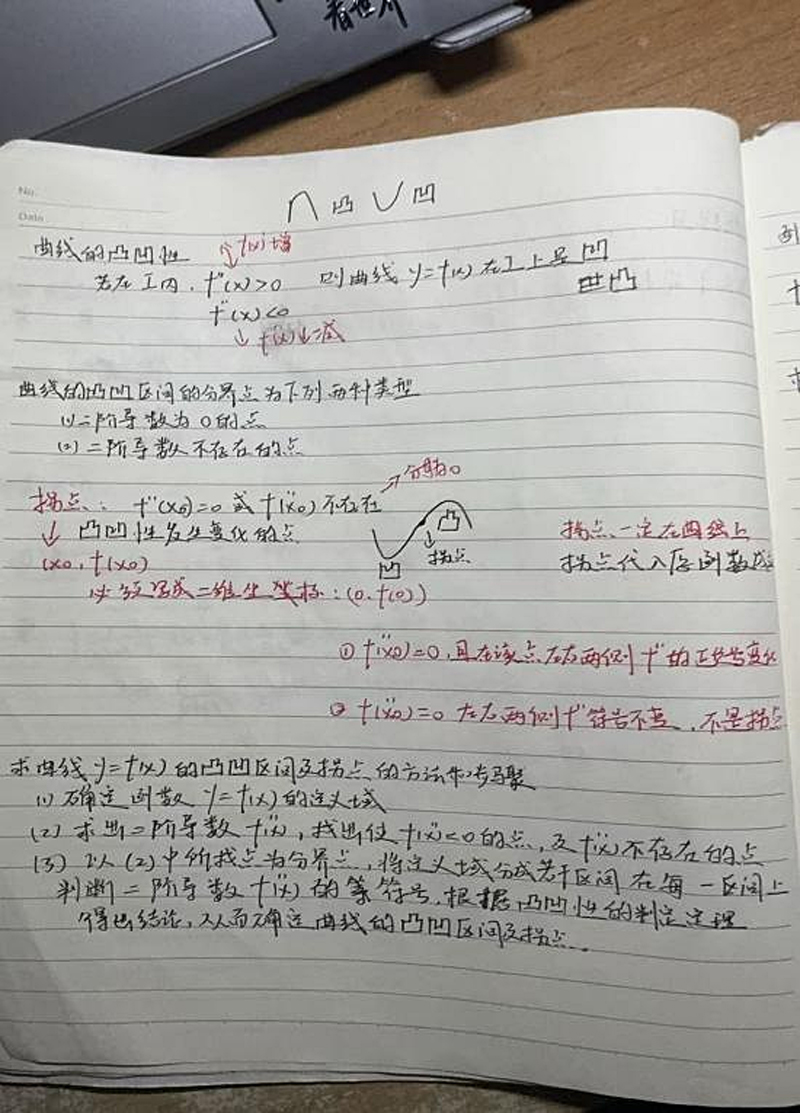 看世界
No.
Date
凸 凹
曲线的凸凹性 f'(x)增
若在I内, f''(x)>0 则曲线y=f(x)在I上是凹
f''(x)<0 凸
f'(x)减
曲线的凸凹区间的分界点为下列两种类型
(1)二阶导数为0的点
(2)二阶导数不存在的点
拐点: f''(x0)=0或f''(x0)不存在 分母为0
凸凹性发生变化的点 凸 拐点一定在曲线上
(x0, f(x0) 凹 拐点 拐点代入原函数成
必须写成二维坐标:(0,f(0))
① f''(x0)=0,且在该点左右两侧f''的正负号变化
② f''(x0)=0 左右两侧f''符号不变,不是拐点
求曲线y=f(x)的凸凹区间及拐点的方法和步骤
(1)确定函数y=f(x)的定义域
(2)求出二阶导数f''(x),找出使f''(x)<0的点,及f''(x)不存在的点
(3)以(2)中所找点为分界点,将定义域分成若干区间在每一区间上
判断二阶导数f''(x)的符号,根据凸凹性的判定定理
得出结论,从而确定曲线的凸凹区间及拐点.
例
f
求